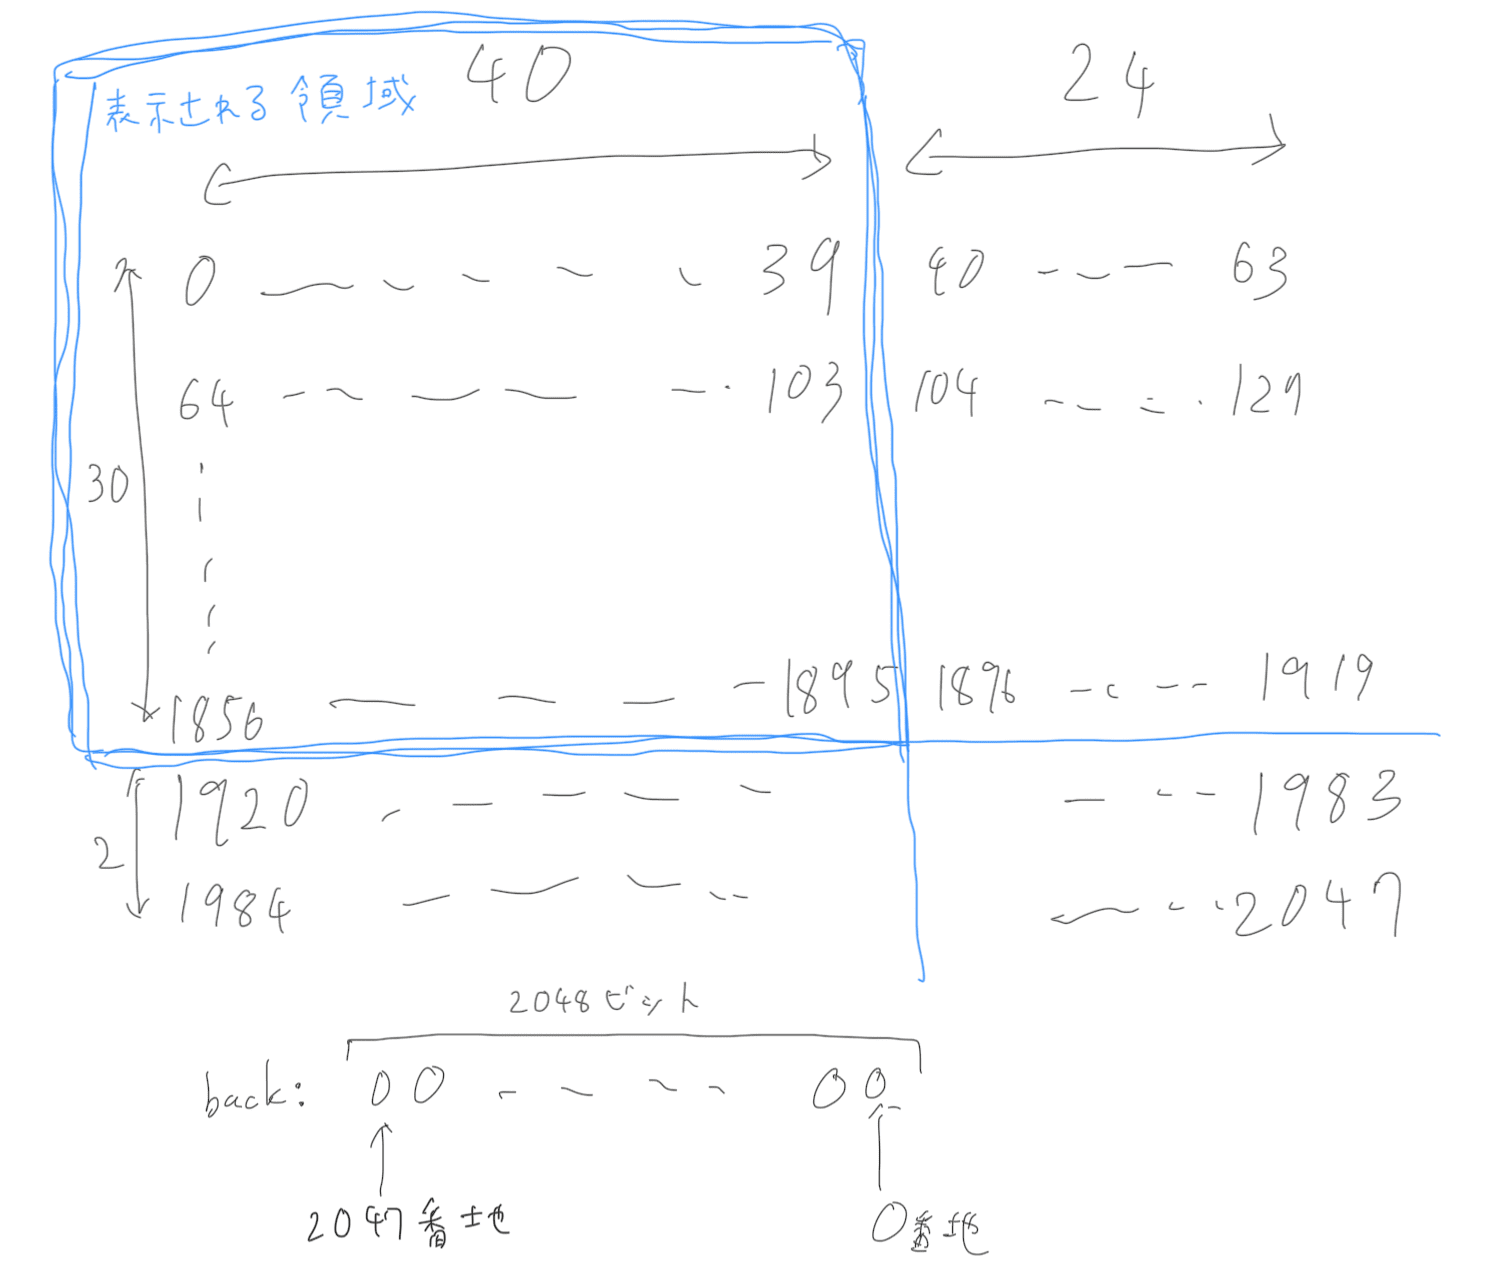 40 24
表示される領域
0 39 40 63
64 103 104 127
30
1856 1895 1896 1919
1920 1983
2
1984 2047
2048ビット
back: 00 00
2047番地 0番地